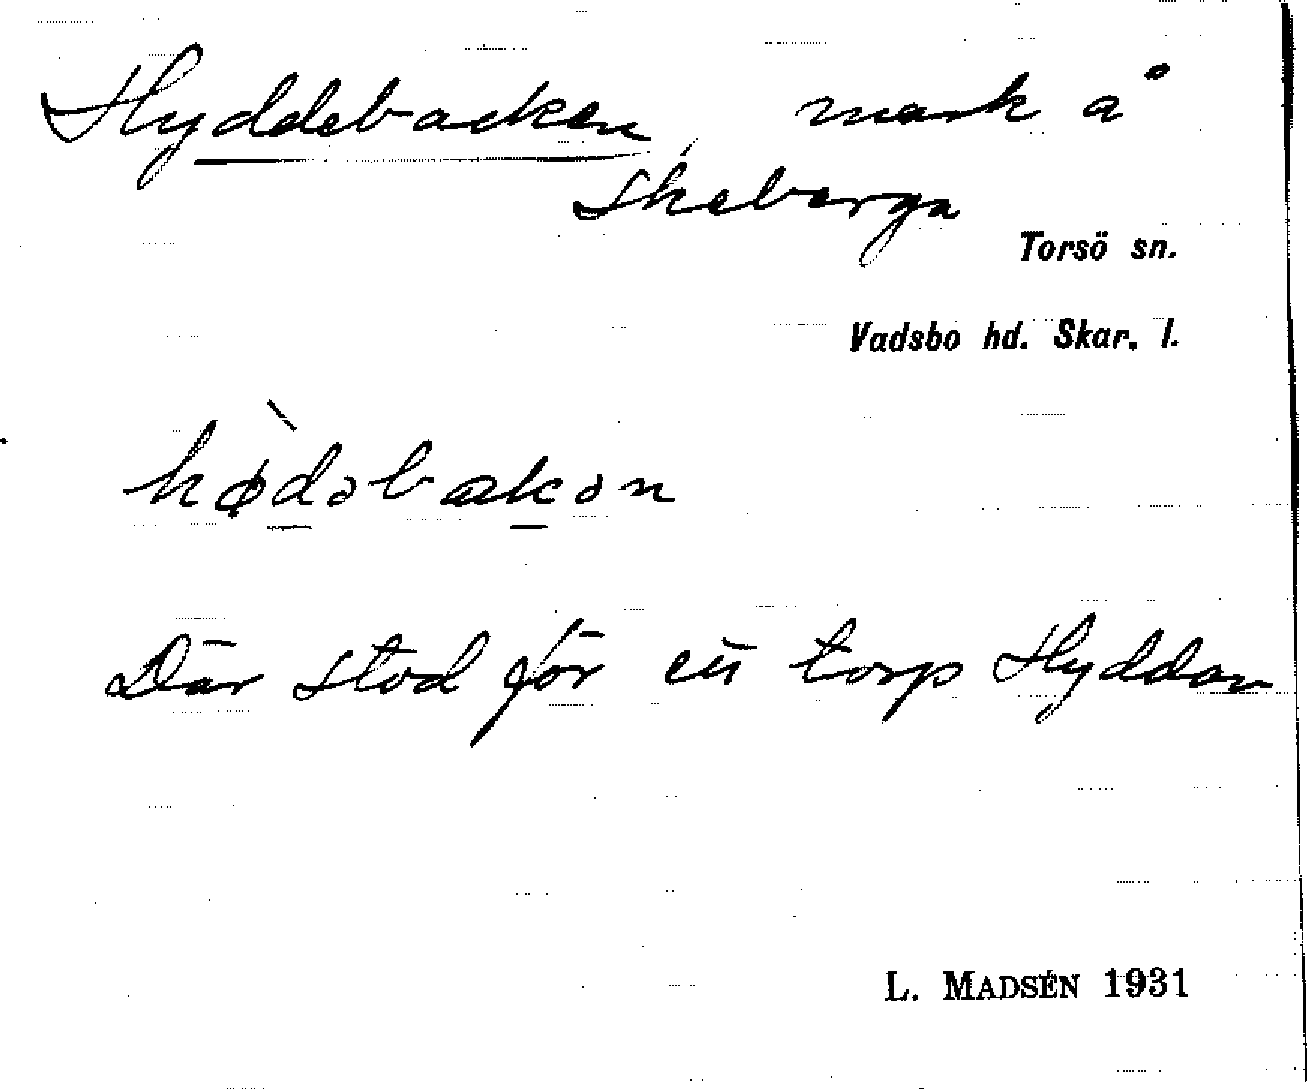 Hyddebacken, mark å
Skeberga
Torsö sn.
Vadsbo hd. Skar. l.
hø̀dəbakən
Där stod för ett torp Hyddan
L. MADSÉN 1931